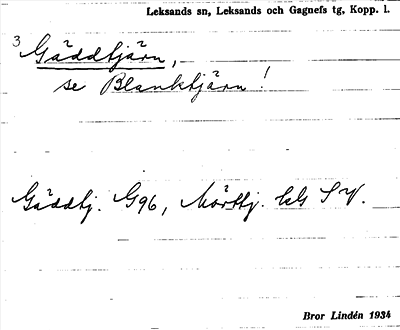 Leksands sn, Leksands och Gagnefs tg, Kopp. l.
3 Gäddtjärn,
se Blanktjärn!
Gäddtj. G96, Mörttj. kls SV.
Bror Lindén 1934